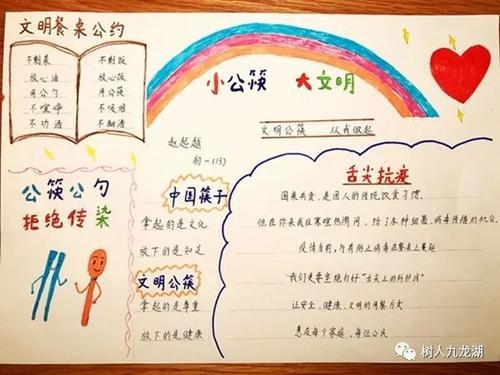 文明餐桌公约
不剩菜 不剩饭
放心油 放心饭
用公勺 用公筷
不喧哗 不吸烟
不劝酒 不酗酒
小公筷 大文明
文明公筷 从我做起
赵起越
初一(13)
公筷公勺
拒绝传染
中国筷子
拿起的是文化
放下的是知足
文明公筷
拿起的是尊重
放下的是健康
舌尖抗疫
围桌共食,是国人的传统饮食习惯.
但在你来我往寒暄热闹间,给了各种细菌、病毒传播的机会.
疫情当前,与有防止病毒在餐桌上蔓延
我们更要重视打好"舌尖上的防护战"
让安全、健康、文明的用餐方式
惠及每个家庭、每位公民
树人九龙湖